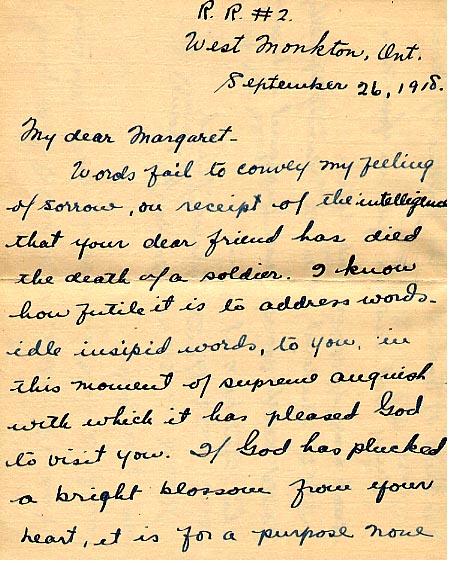 R. R. #2.
West Monkton, Ont.
September 26, 1918.
My dear Margaret-
Words fail to convey my feeling
of sorrow, on receipt of the intelligence
that your dear friend has died
the death of a soldier. I know
how futile it is to address words-
idle insipid words, to you, in
this moment of supreme anguish
with which it has pleased God
to visit you. If God has plucked
a bright blossom from your
heart, it is for a purpose none